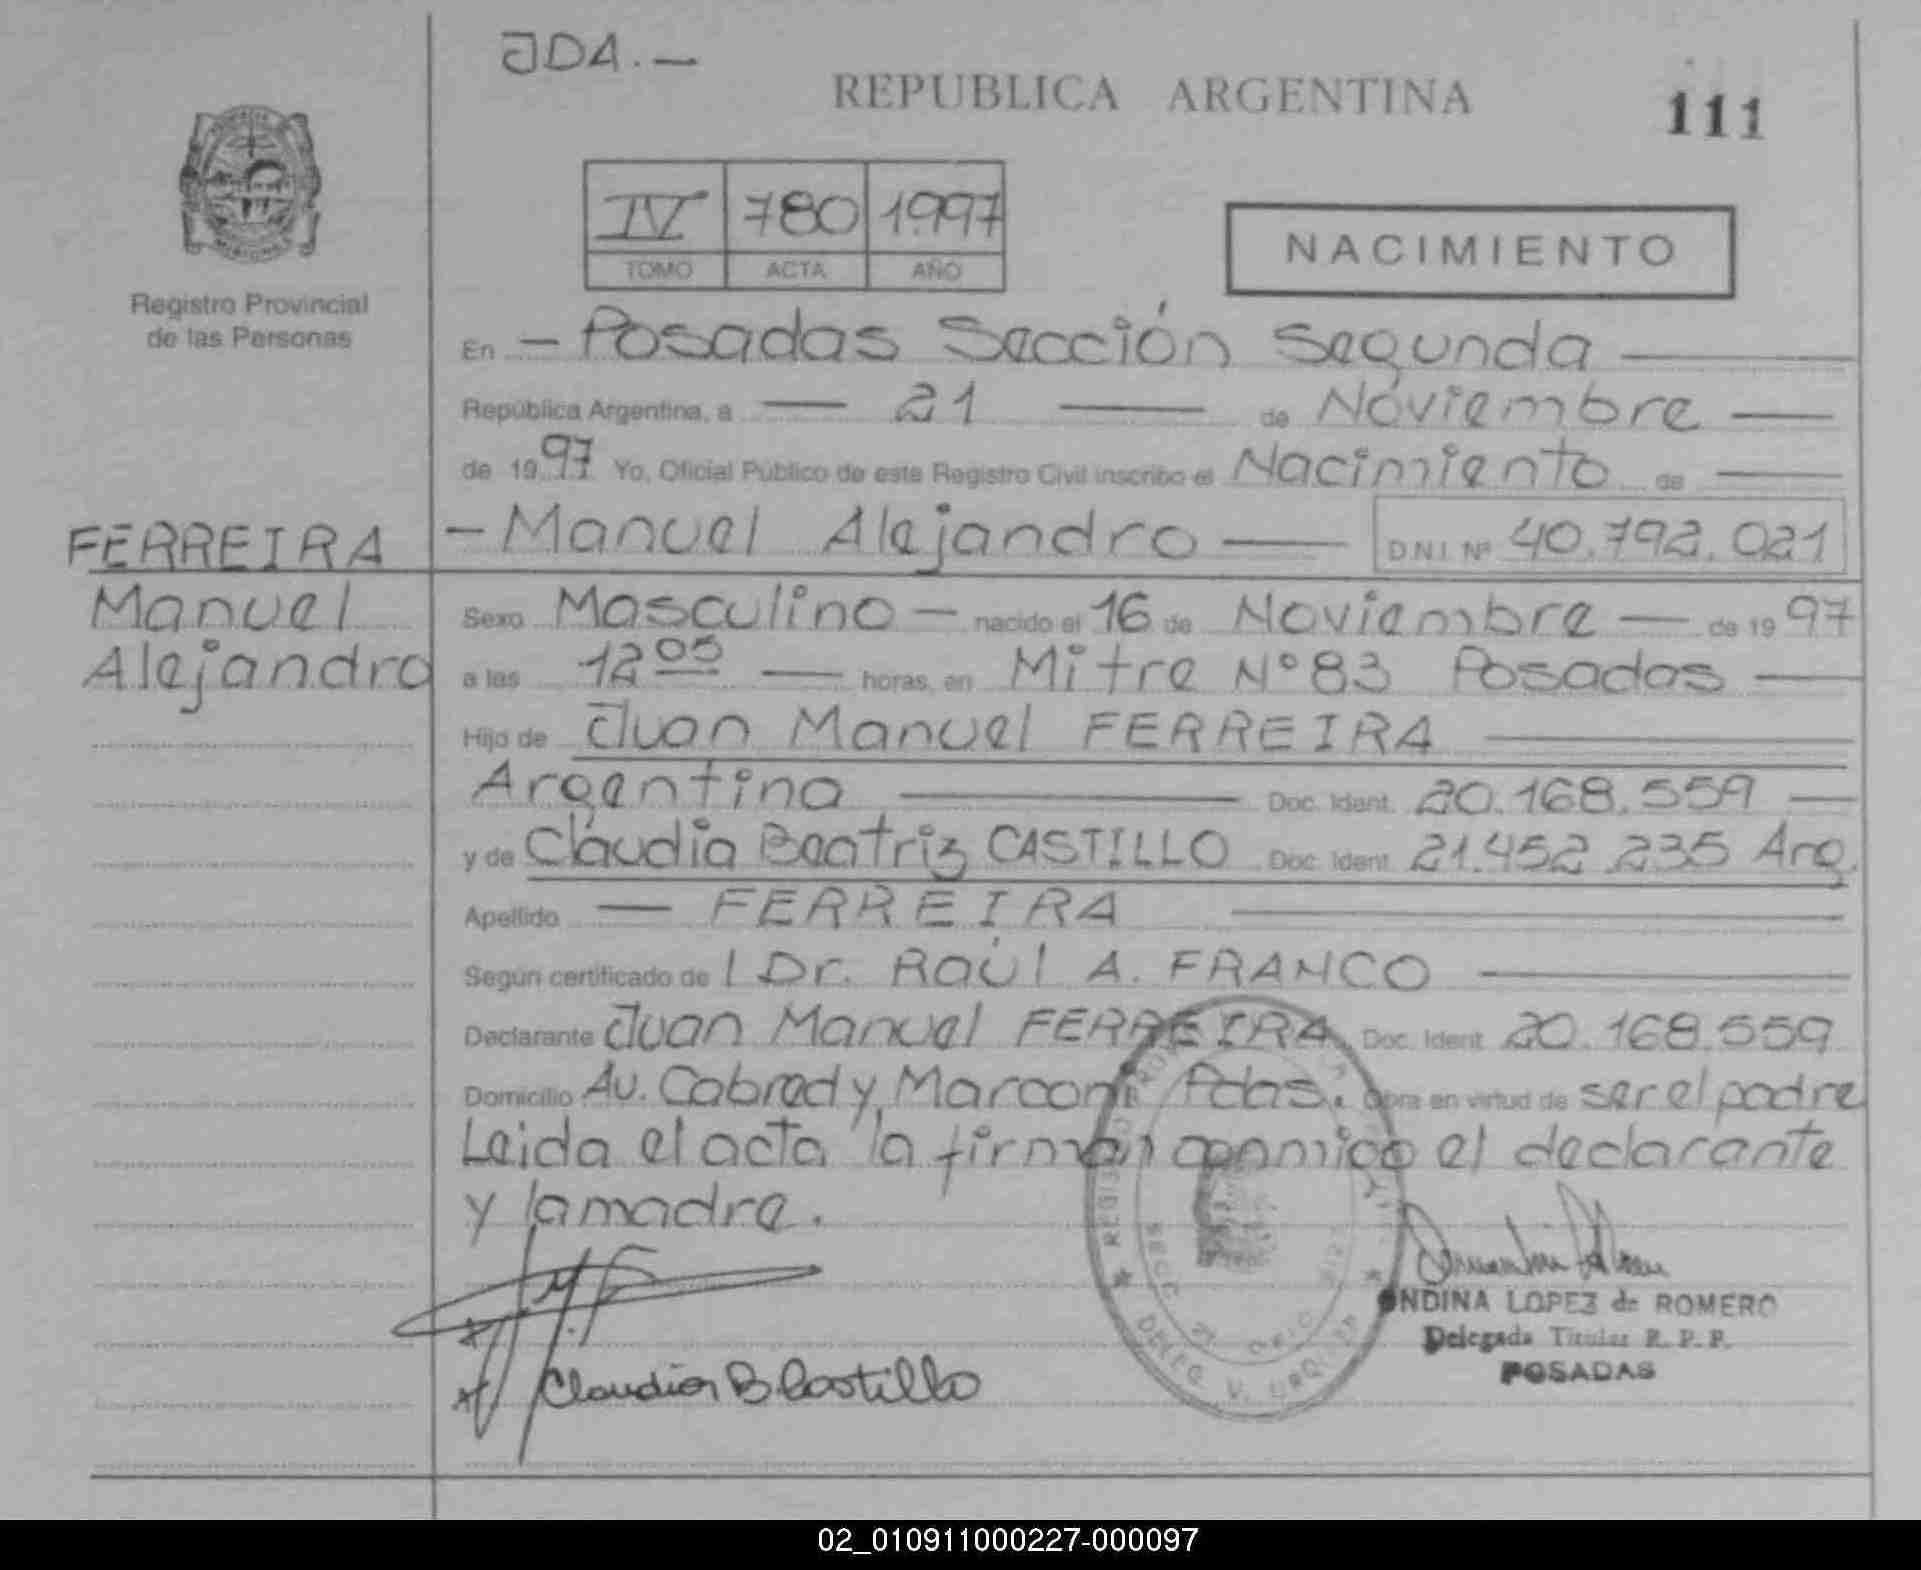 JDA.—
REPUBLICA ARGENTINA
111
IV 780 1997
TOMO ACTA AÑO
NACIMIENTO
Registro Provincial
de las Personas
En — Posadas Sección Segunda —
República Argentina, a — 21 — de Noviembre —
de 1997 Yo, Oficial Público de este Registro Civil inscribo el Nacimiento de —
FERREIRA
Manuel
Alejandro
— Manuel Alejandro — D.N.I. Nº 40.792.021
Sexo Masculino — nacido el 16 de Noviembre — de 1997
a las 12 05 — horas, en Mitre Nº 83 Posadas —
Hijo de Juan Manuel FERREIRA —
Argentino — Doc. Ident. 20.168.559 —
y de Claudia Beatriz CASTILLO Doc. Ident. 21.452.235 Arg.
Apellido — FERREIRA —
Según certificado de l Dr. Raúl A. FRANCO —
Declarante Juan Manuel FERREIRA Doc. Ident. 20.168.559
Domicilio Av. Cabred y Marconi Pdas. Obra en virtud de ser el padre
Leida el acta la firman conmigo el declarante
y la madre.
Claudia B Castillo
NDINA LOPEZ de ROMERO
Delegada Titular R. P. P.
POSADAS
02_010911000227-000097